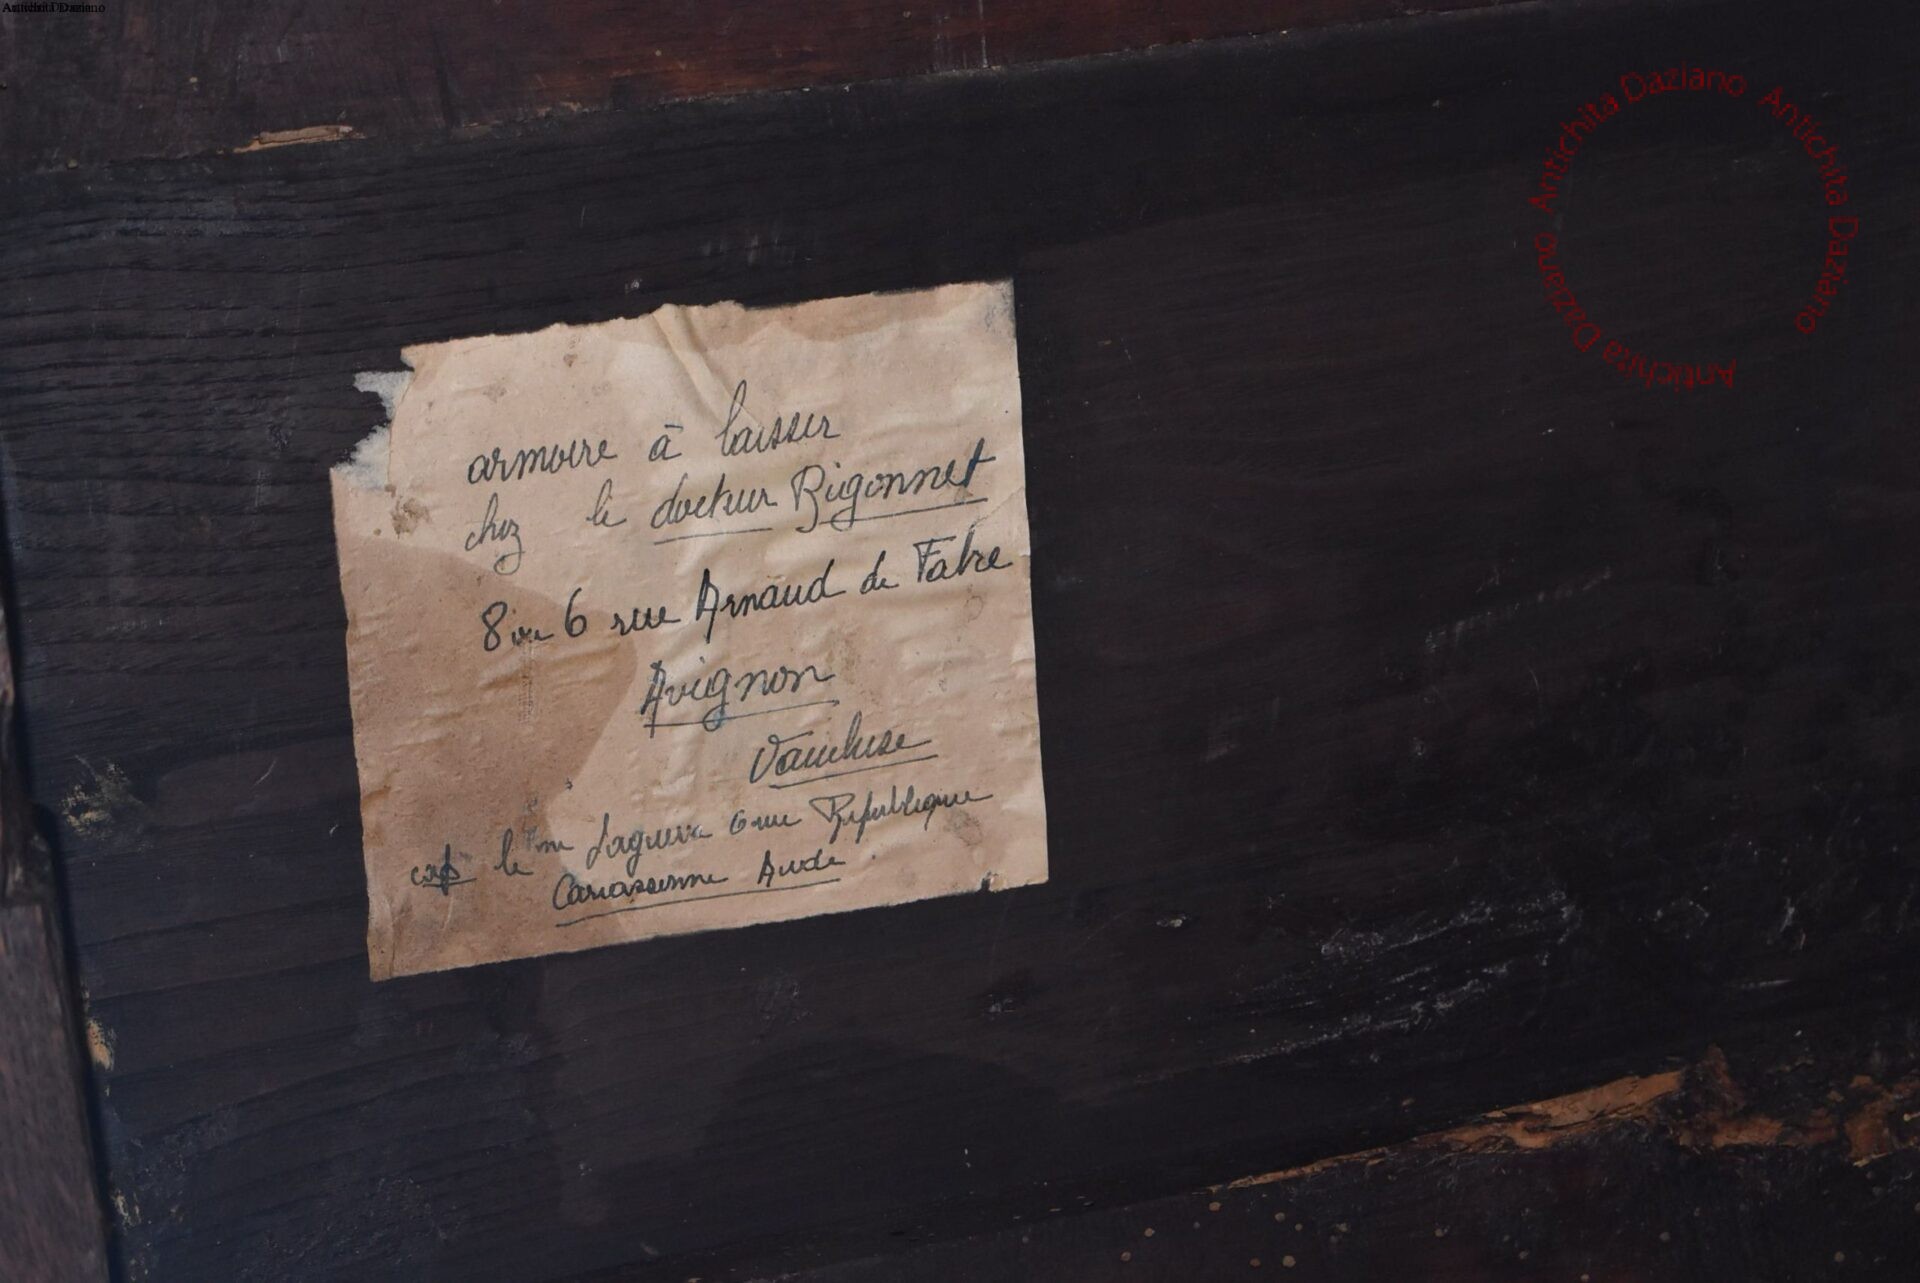 armoire à laisser
chez le docteur Rigonnet
8 ou 6 rue Arnaud de Fabre
Avignon
Vaucluse
le 6 rue République
Carcassonne Aude
Antichita Daziano Antichita Daziano Antichita Daziano